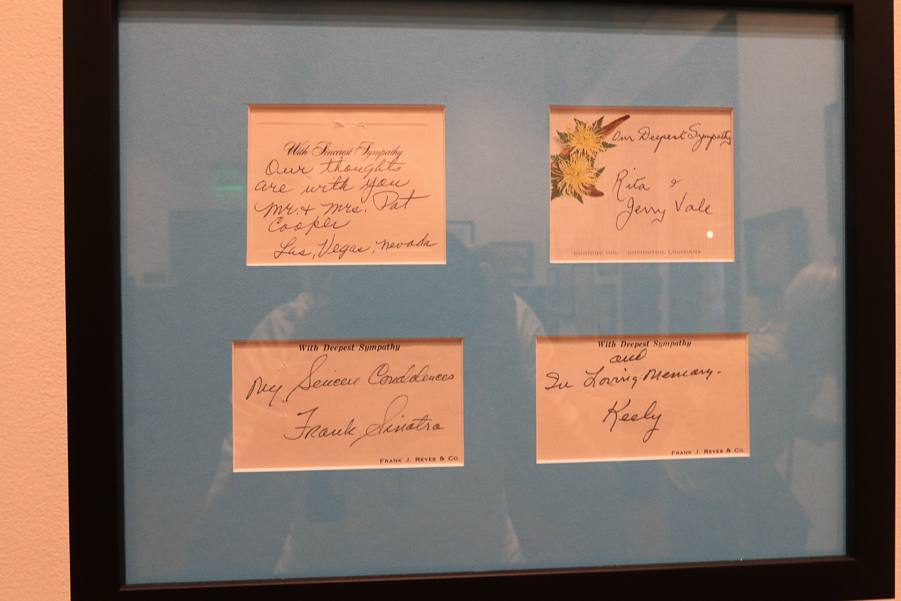 With Sincerest Sympathy
Our thoughts
are with you
Mr. & Mrs. Pat
Cooper
Las, Vegas, nevada
Our Deepest Sympathy
Rita &
Jerry Vale
COVINGTON, LOUISIANA
With Deepest Sympathy
My Sincere Condolences
Frank Sinatra
FRANK J. REYES & CO.
With Deepest Sympathy
and
In Loving Memory-
Keely
FRANK J. REYES & CO.